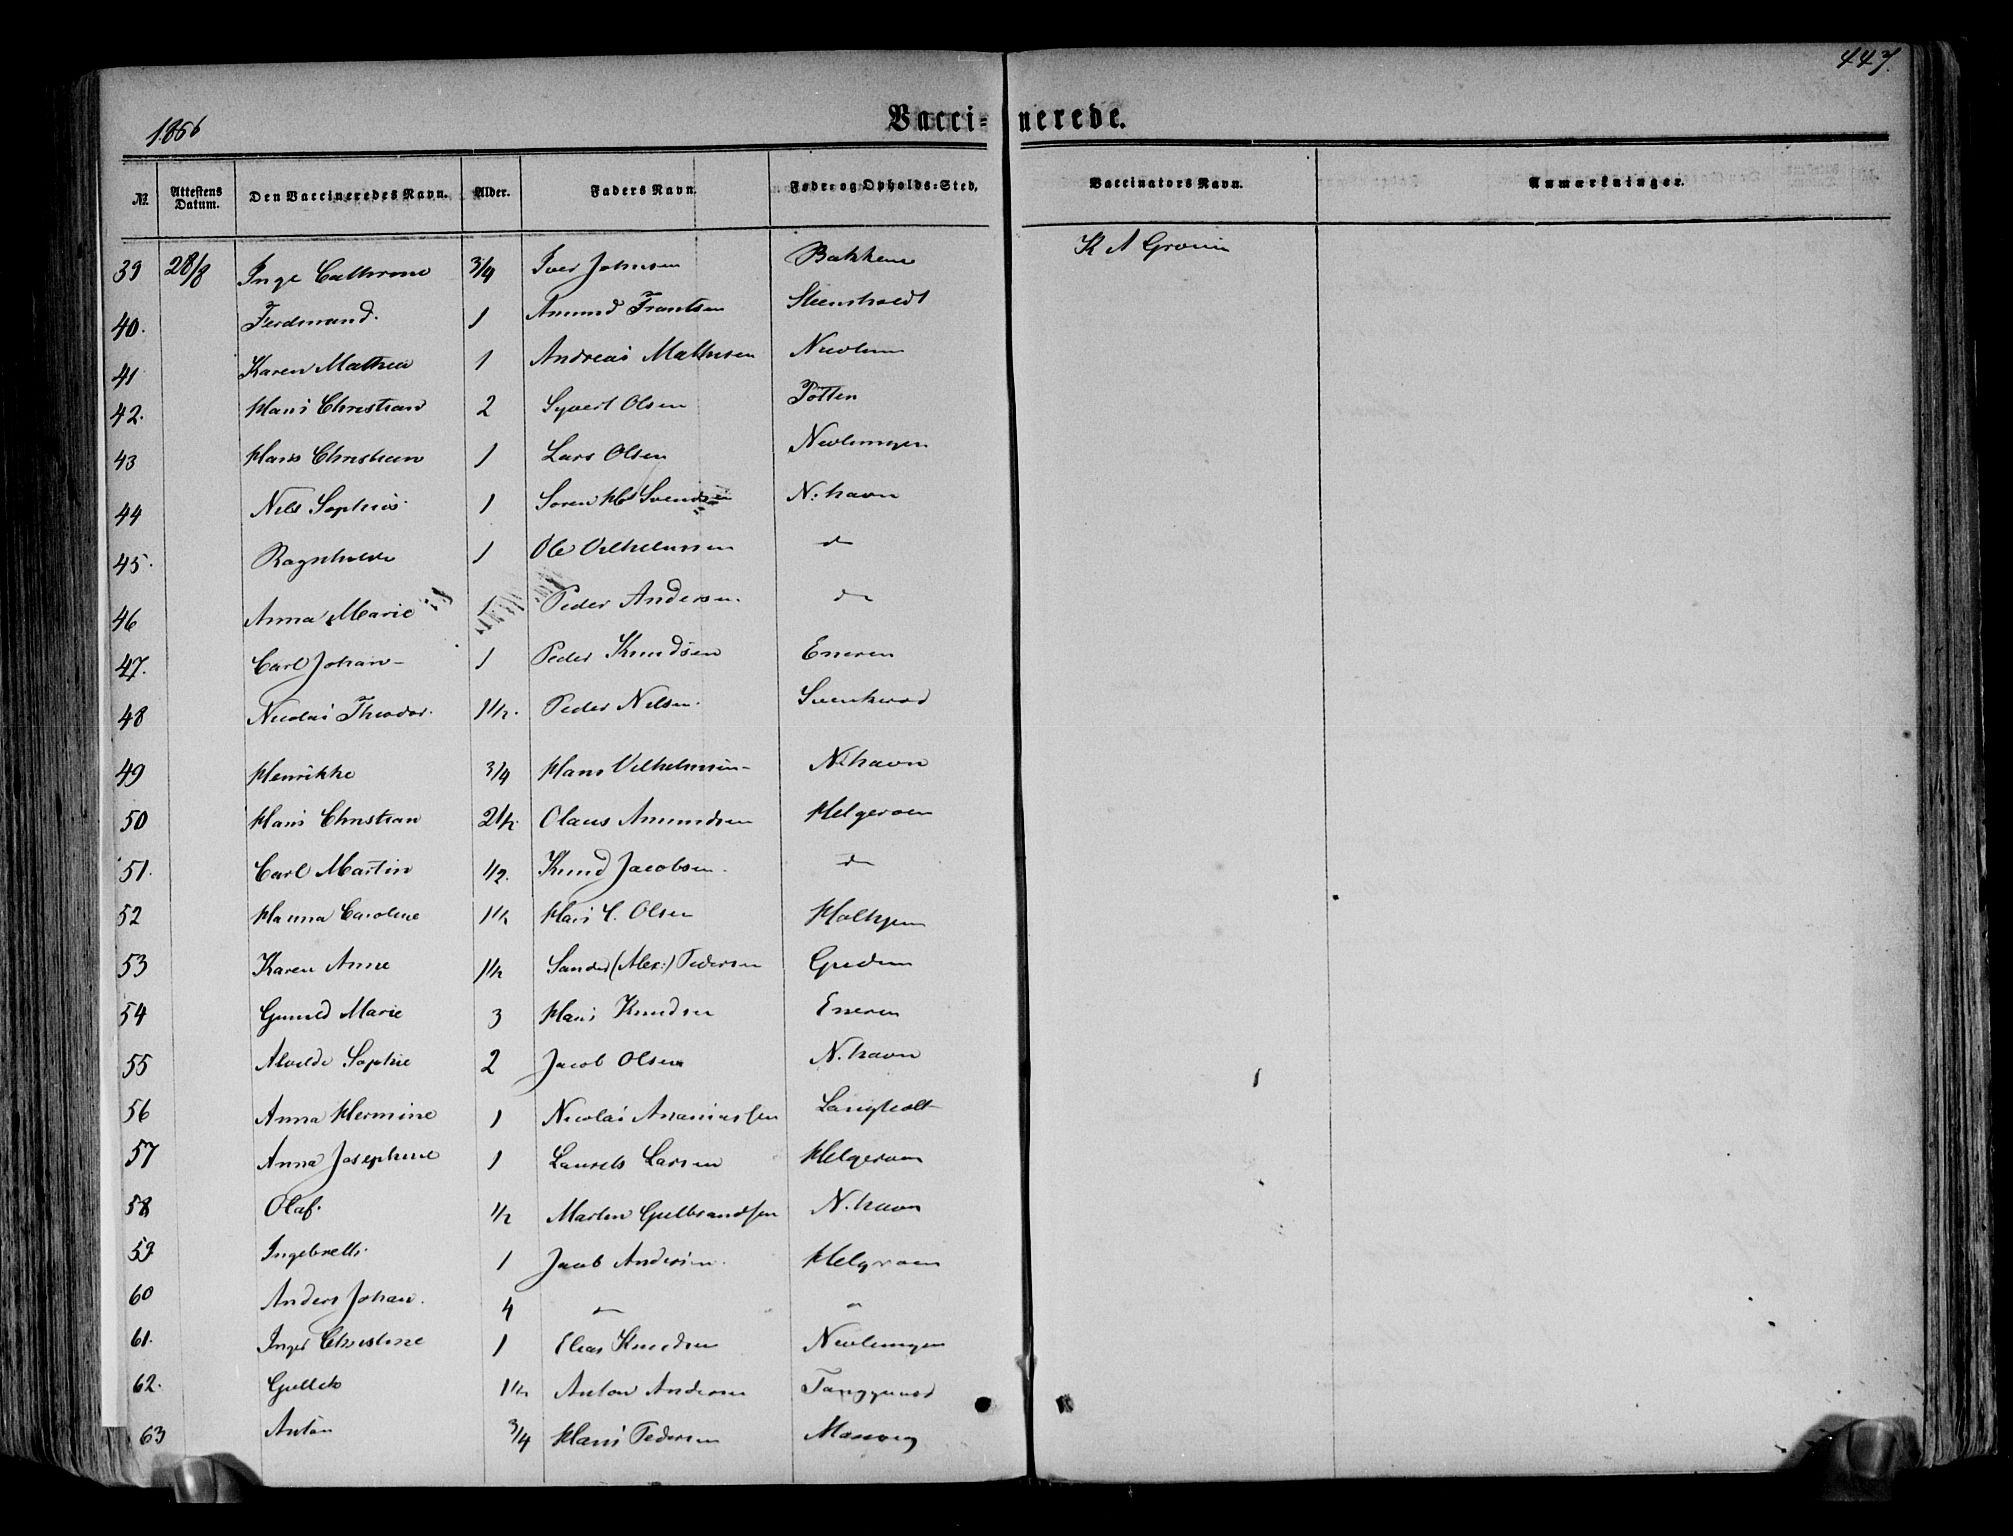 447.
1866
Vaccinerede.
No. Attestens Datum. Den Vaccineredes Navn. Alder. Faders Navn. Føde- og Opholds-Sted. Vaccinators Navn. Anmærkninger.
39 28/8 Inge Cathrine 3/4 Iver Johnsen Bakkene K A Grønn
40. Ferdinand. 1 Amund Frantsen Steensholdt
41 Karen Mathea 1 Andreas Mathisen Nevlun
42. Hans Christian 2 Syvert Olsen Totten
43 Hans Christian 1 Lars Olsen Nevlungen
44 Nils Sophus 1 Soren Hs Svendsen N: havn
45. Ragnhilde 1 Ole Vilhelmsen do
46 Anna Marie 1 Peder Andersen. do
47. Carl Johan 1 Peder Knudsen Eneren
48 Nicolai Theodor. 1 1/2. Peder Nilsen.
49 Henrikke 3/4 Hans Vilhelmsen N. havn
50 Hans Christian 2 1/2 Olaus Amundsen Helgeroen
51. Carl Martin 1/2. Knud Jacobsen. do
52 Hanna Caroline 1 1/2 Hans C. Olsen
53 Karen Anne 1 1/2 Sander (Alex:) Pedersen
54 Gunild Marie 3 Hans Knudsen Eneren
55 Alvilde Sophie 2 Jacob Olsen N. havn
56 Anna Hermine 1 Nicolai Ananiassen Langholt
57 Anna Josephine 1 Laurets Larsen Helgeroen
58 Olaf. 1/2 Martin Gulbrandsen N. havn
59 Ingebrett. 1 Jacob Andersen. Helgeroen
60 Anders Johan. 4 do do
61. Inger Christine 1 Elias Knudsen Nevlungen
62. Gullik 1 1/2 Anton Andersen Tanggaard
63 Anton 3/4 Hans Pedersen